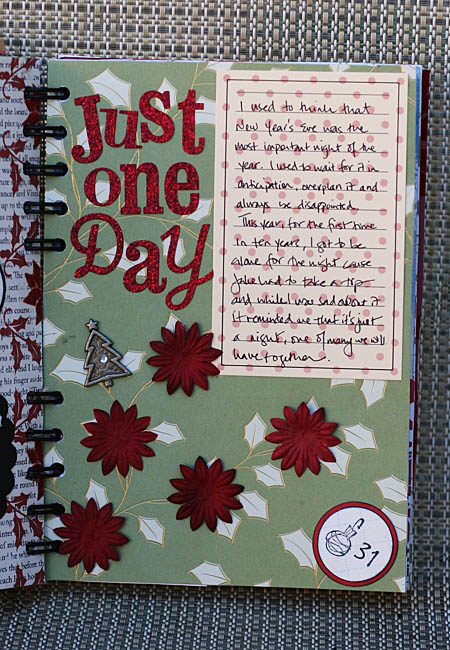 Just
one
Day
I used to think that
New Year's Eve was the
most important night of the
year. I used to wait for it in
anticipation, overplan it and
always be disappointed.
This year, for the first time
in ten years, I got to be
alone for the night cause
Jake had to take a trip
and while I was sad about it
it reminded me that it's just
a night, one of many we will
have together.
31